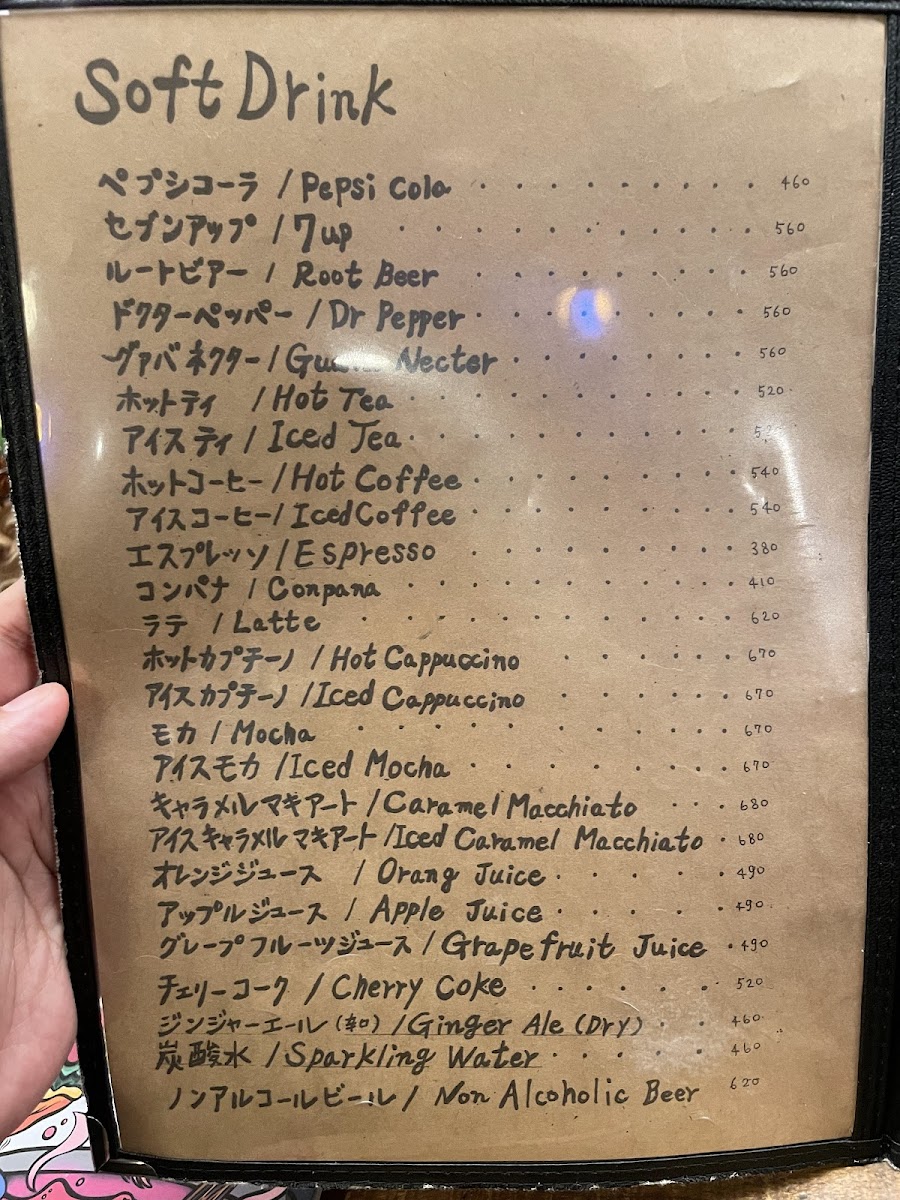 Soft Drink
ペプシコーラ / Pepsi Cola ・・・・・・・・・ 460
セブンアップ / 7up ・・・・・・・・・・ 560
ルートビアー / Root Beer ・・・・・・・・ 560
ドクターペッパー / Dr Pepper ・・・・・・・・ 560
グァバネクター / Necter ・・・・・・・ 560
ホットティ / Hot Tea ・・・・・・・・・ 520
アイスティ / Iced Tea ・・・・・・・・・
ホットコーヒー / Hot Coffee ・・・・・・・・ 540
アイスコーヒー / Iced Coffee ・・・・・・・・ 540
エスプレッソ / Espresso ・・・・・・・・ 380
コンパナ / Conpana ・・・・・・・・・・ 410
ラテ / Latte ・・・・・・・・・・ 620
ホットカプチーノ / Hot Cappuccino ・・・・・・ 670
アイスカプチーノ / Iced Cappuccino ・・・・・・ 670
モカ / Mocha ・・・・・・・・・・ 670
アイスモカ / Iced Mocha ・・・・・・・・ 670
キャラメルマキアート / Caramel Macchiato ・・・ 680
アイスキャラメルマキアート / Iced Caramel Macchiato ・ 680
オレンジジュース / Orang Juice ・・・・・ 490
アップルジュース / Apple Juice ・・・・・ 490
グレープフルーツジュース / Grapefruit Juice ・ 490
チェリーコーク / Cherry Coke ・・・・・・ 520
ジンジャーエール (辛口) / Ginger Ale (Dry) ・・ 460
炭酸水 / Sparkling Water ・・・・・ 460
ノンアルコールビール / Non Alcoholic Beer 620